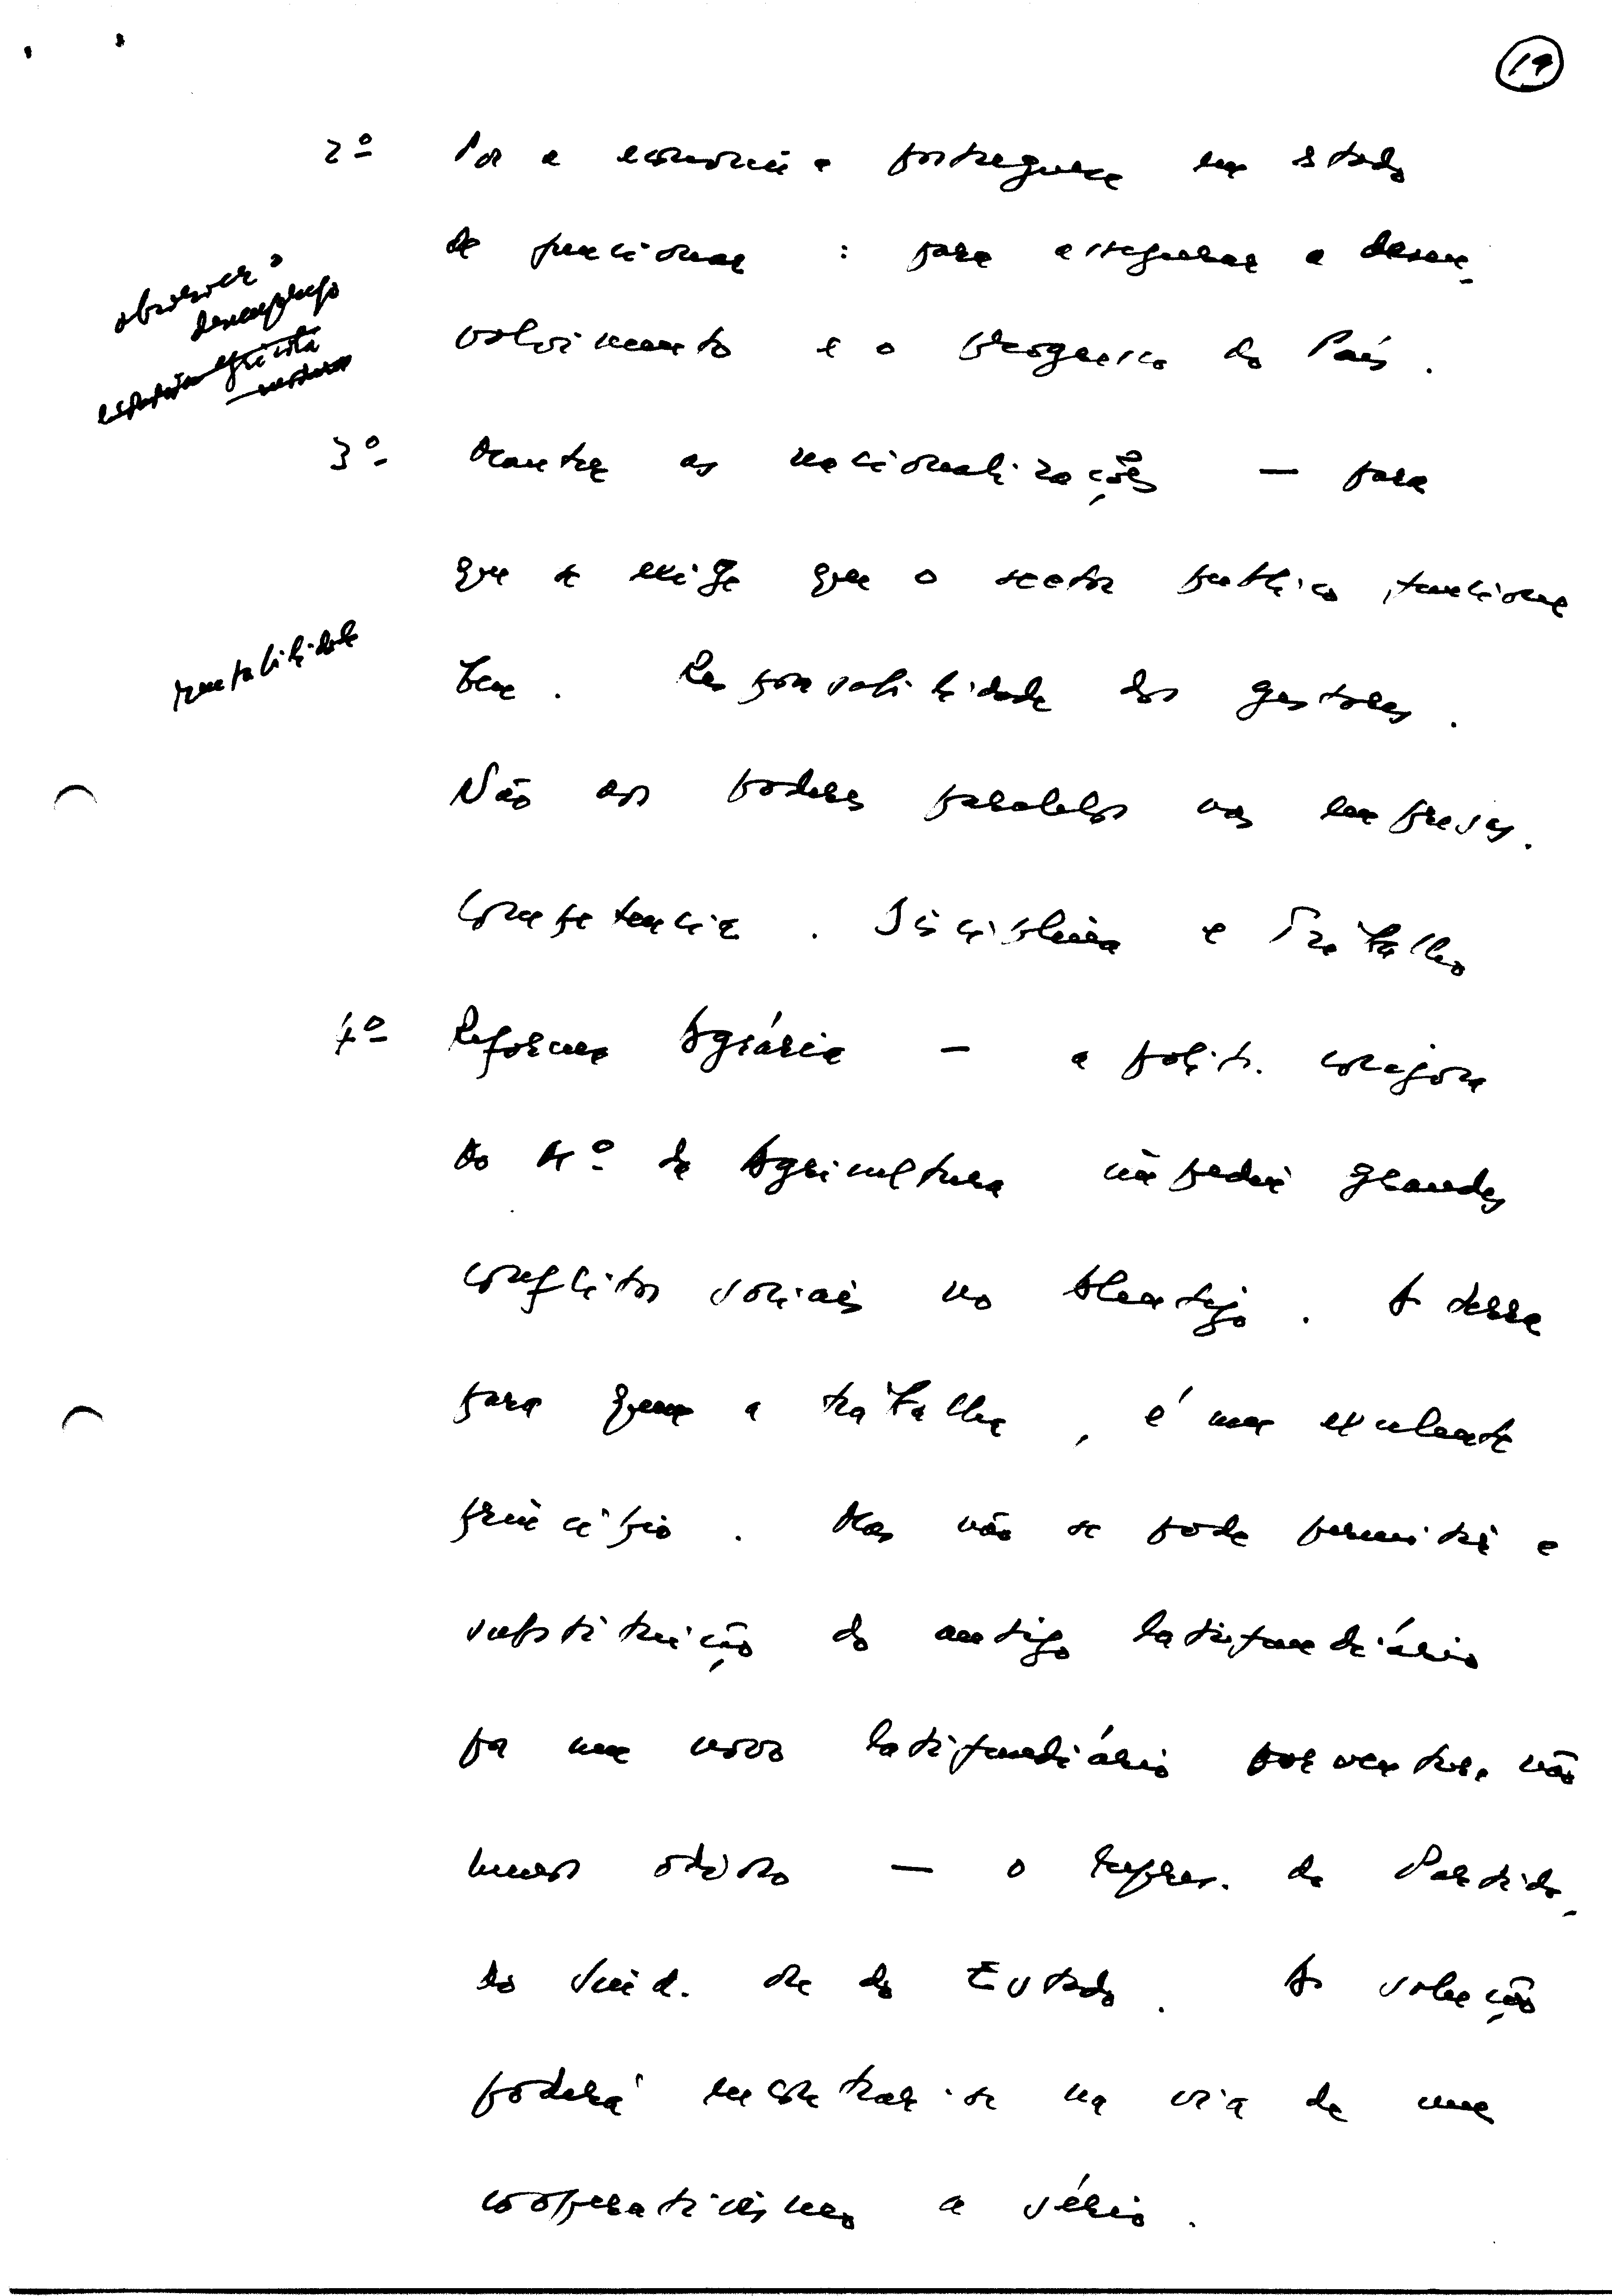 19
2º Pôr a economia portuguesa em estado
de funcionar : para assegurar o desen-
volvimento e o progresso do País .
absorver o
desemprego
agrícola
3º Manter as nacionalizações — para
que se exige que o sector público funcione
rentabilidade
bem . Responsabilidade dos gestores .
Não aos poderes paralelos nas empresas .
Competência . Disciplina e Trabalho
4º Reforma Agrária — a polít. corajosa
do Mº da Agricultura impediu grandes
conflitos sociais no Alentejo . A terra
para quem a trabalha , é um excelente
princípio . Mas não se pode permitir a
substituição do antigo latifundiário
por um novo latifundiário porventura não
menos odioso — o repres. do Partido -
do Sind. ou do Estado . A solução
poderá encontrar-se na via de um
cooperativismo a sério .